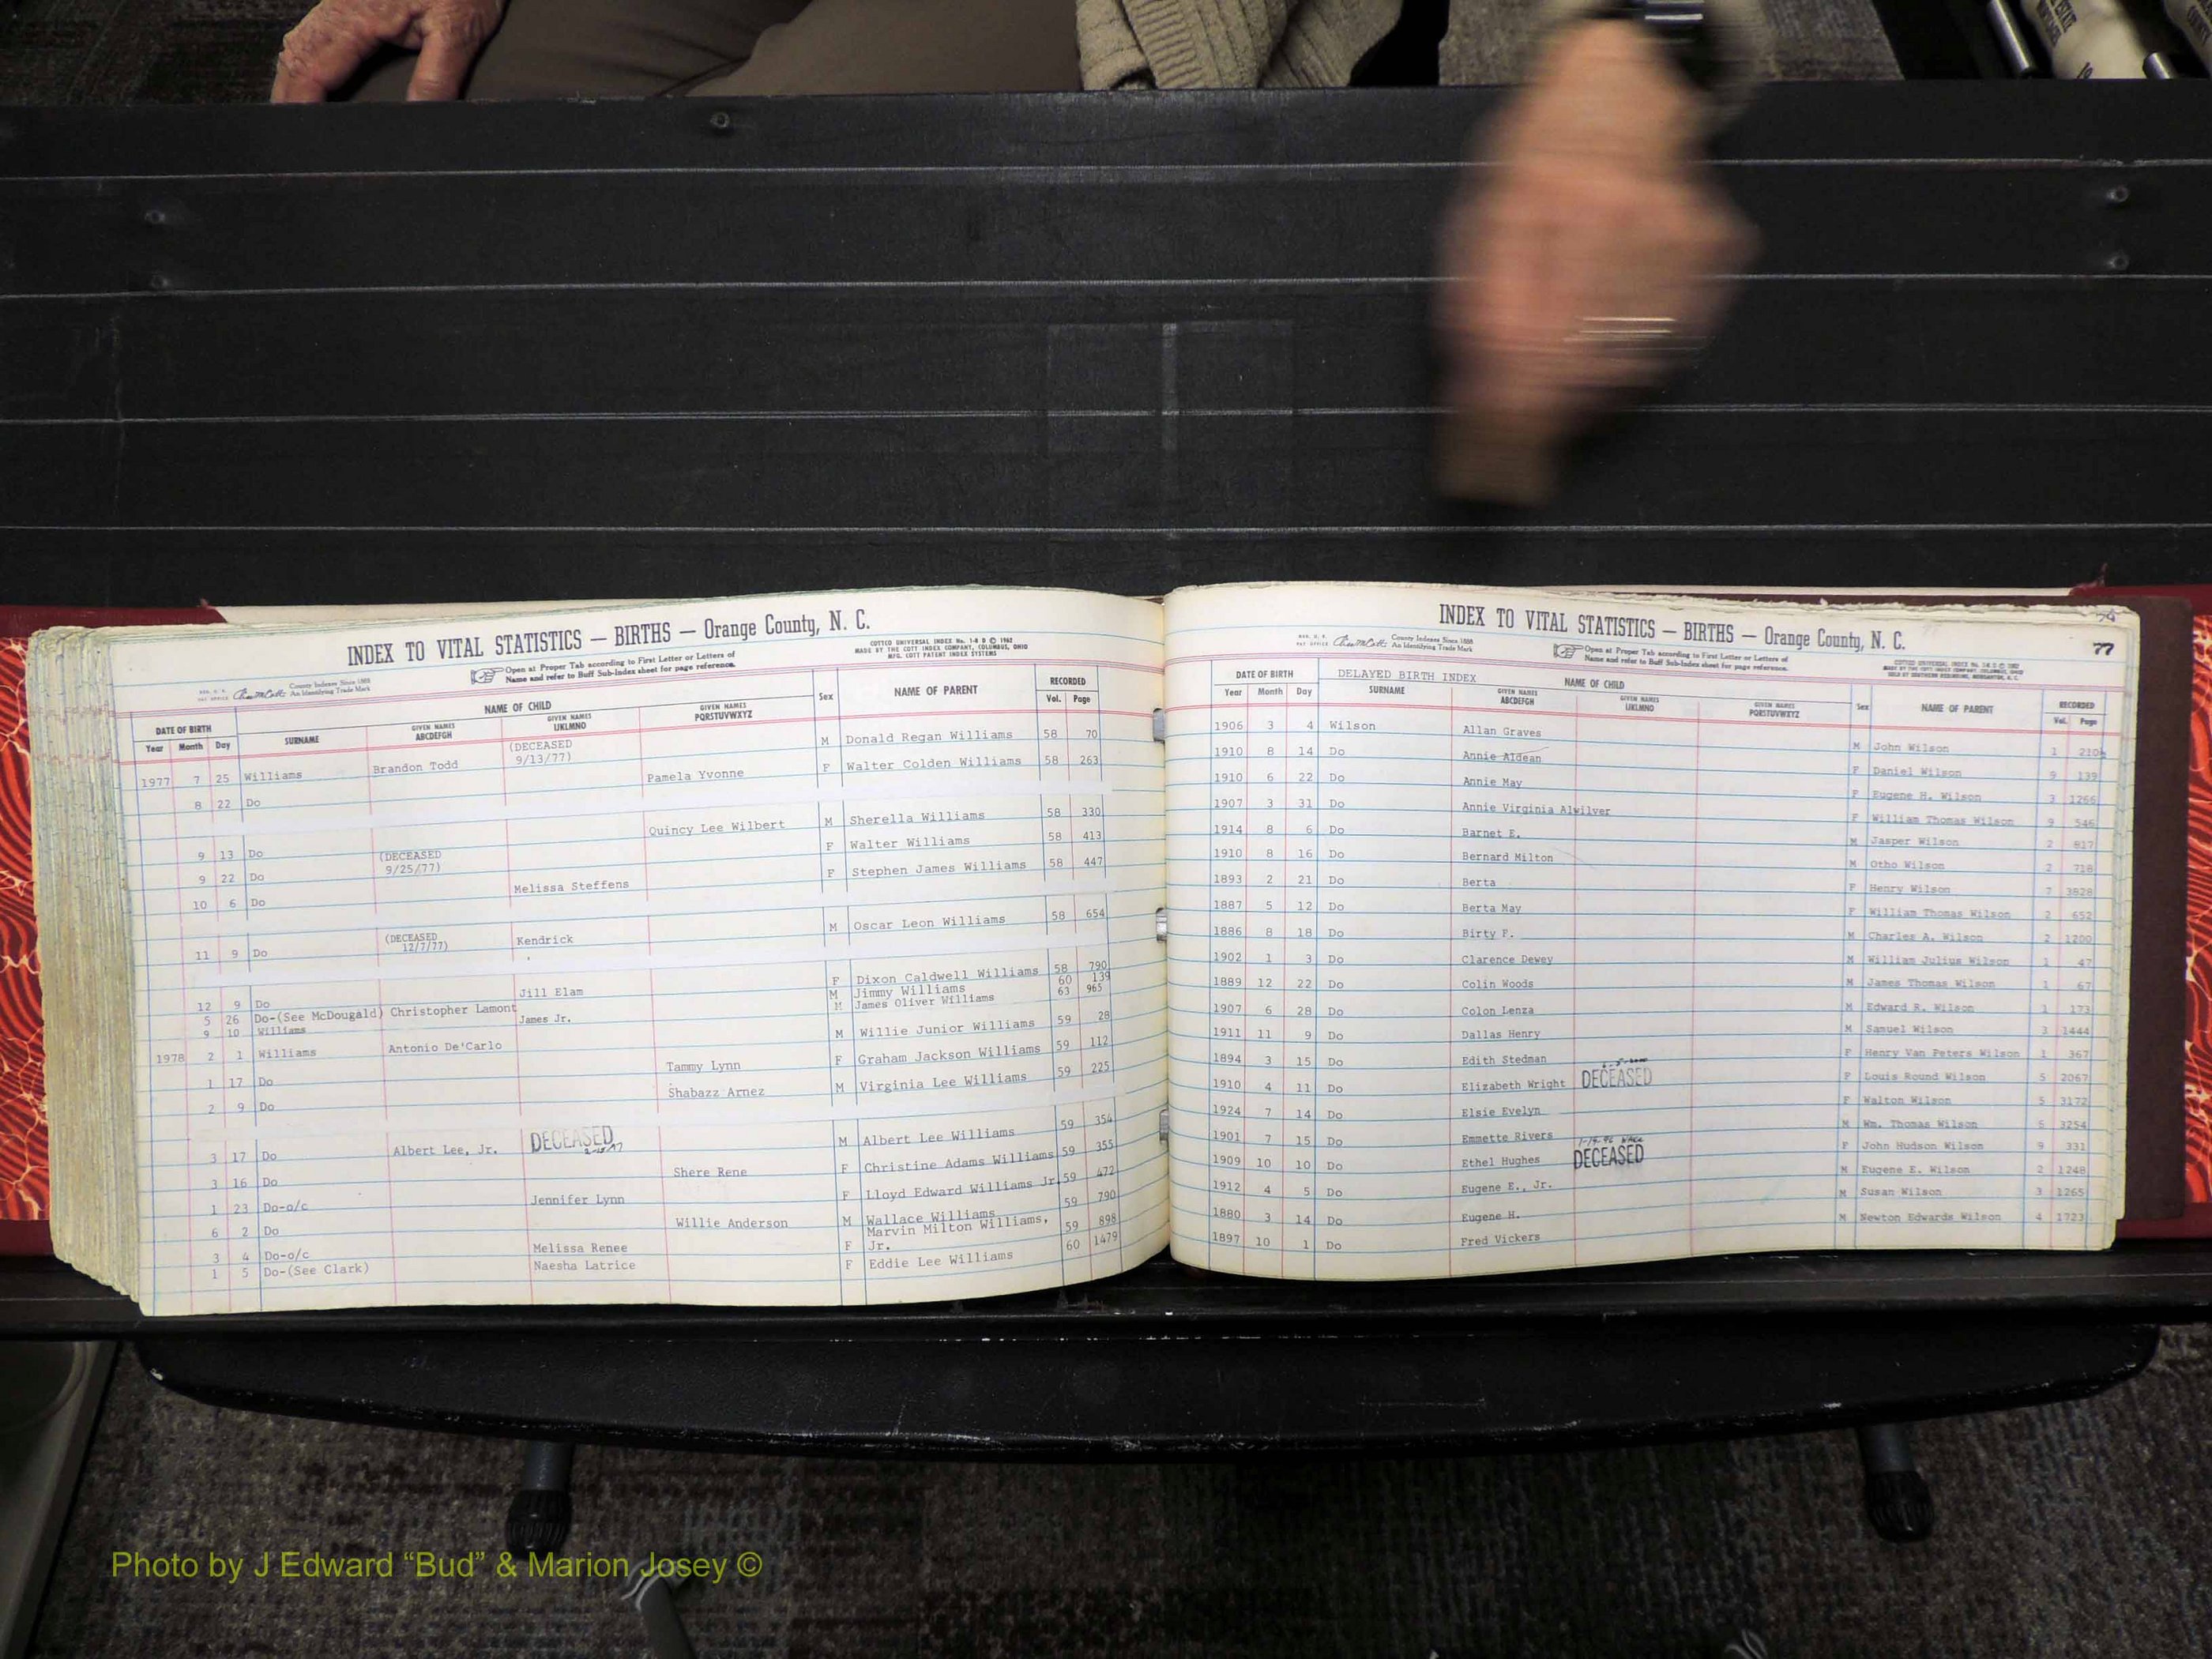 INDEX TO VITAL STATISTICS — BIRTHS — Orange County, N. C.
COTTCO UNIVERSAL INDEX No. 1-8 D © 1962
MADE BY THE COTT INDEX COMPANY, COLUMBUS, OHIO
MFG. COTT PATENT INDEX SYSTEMS
County Indexes Since 1888
An Identifying Trade Mark
Open at Proper Tab according to First Letter or Letters of
Name and refer to Buff Sub-Index sheet for page reference.
DATE OF BIRTH NAME OF CHILD Sex NAME OF PARENT RECORDED
Year Month Day SURNAME GIVEN NAMES ABCDEFGH GIVEN NAMES IJKLMNO GIVEN NAMES PQRSTUVWXYZ Vol. Page
1977 7 25 Williams Brandon Todd (DECEASED 9/13/77) M Donald Regan Williams 58 70
8 22 Do Pamela Yvonne F Walter Colden Williams 58 263
9 13 Do Quincy Lee Wilbert M Sherella Williams 58 330
9 22 Do (DECEASED 9/25/77) F Walter Williams 58 413
10 6 Do Melissa Steffens F Stephen James Williams 58 447
11 9 Do (DECEASED 12/7/77) Kendrick M Oscar Leon Williams 58 654
12 9 Do Jill Elam F Dixon Caldwell Williams 58 790
5 26 Do-(See McDougald) Christopher Lamont M Jimmy Williams 60 139
9 10 Williams James Jr. M James Oliver Williams 63 965
1978 2 1 Williams Antonio De'Carlo M Willie Junior Williams 59 28
1 17 Do Tammy Lynn F Graham Jackson Williams 59 112
2 9 Do Shabazz Arnez M Virginia Lee Williams 59 225
3 17 Do Albert Lee, Jr. DECEASED M Albert Lee Williams 59 354
3 16 Do Shere Rene F Christine Adams Williams 59 355
1 23 Do-o/c Jennifer Lynn F Lloyd Edward Williams Jr 59 472
6 2 Do Willie Anderson M Wallace Williams 59 790
3 4 Do-o/c Melissa Renee F Marvin Milton Williams, Jr. 59 898
1 5 Do-(See Clark) Naesha Latrice F Eddie Lee Williams 60 1479
INDEX TO VITAL STATISTICS — BIRTHS — Orange County, N. C.
77
County Indexes Since 1888
An Identifying Trade Mark
Open at Proper Tab according to First Letter or Letters of
Name and refer to Buff Sub-Index sheet for page reference.
DATE OF BIRTH DELAYED BIRTH INDEX NAME OF CHILD Sex NAME OF PARENT RECORDED
Year Month Day SURNAME GIVEN NAMES ABCDEFGH GIVEN NAMES IJKLMNO GIVEN NAMES PQRSTUVWXYZ Vol. Page
1906 3 4 Wilson Allan Graves M John Wilson 1
1910 8 14 Do Annie Aldean F Daniel Wilson 9 139
1910 6 22 Do Annie May F Eugene H. Wilson 3 1266
1907 3 31 Do Annie Virginia Alwilver F William Thomas Wilson 9 546
1914 8 6 Do Barnet E. M Jasper Wilson 2 817
1910 8 16 Do Bernard Milton M Otho Wilson 2 718
1893 2 21 Do Berta F Henry Wilson 7 3828
1887 5 12 Do Berta May F William Thomas Wilson 2 652
1886 8 18 Do Birty F. M Charles A. Wilson 2 1200
1902 1 3 Do Clarence Dewey M William Julius Wilson 1 47
1889 12 22 Do Colin Woods M James Thomas Wilson 1 67
1907 6 28 Do Colon Lenza M Edward R. Wilson 1 173
1911 11 9 Do Dallas Henry M Samuel Wilson 3 1444
1894 3 15 Do Edith Stedman F Henry Van Peters Wilson 1 367
1910 4 11 Do Elizabeth Wright DECEASED F Louis Round Wilson 5 2067
1924 7 14 Do Elsie Evelyn F Walton Wilson 5 3172
1901 7 15 Do Emmette Rivers M Wm. Thomas Wilson 5 3254
1909 10 10 Do Ethel Hughes DECEASED F John Hudson Wilson 9 331
1912 4 5 Do Eugene E., Jr. M Eugene E. Wilson 2 1248
1880 3 14 Do Eugene H. M Susan Wilson 3 1265
1897 10 1 Do Fred Vickers M Newton Edwards Wilson 4 1723
Photo by J Edward “Bud” & Marion Josey ©